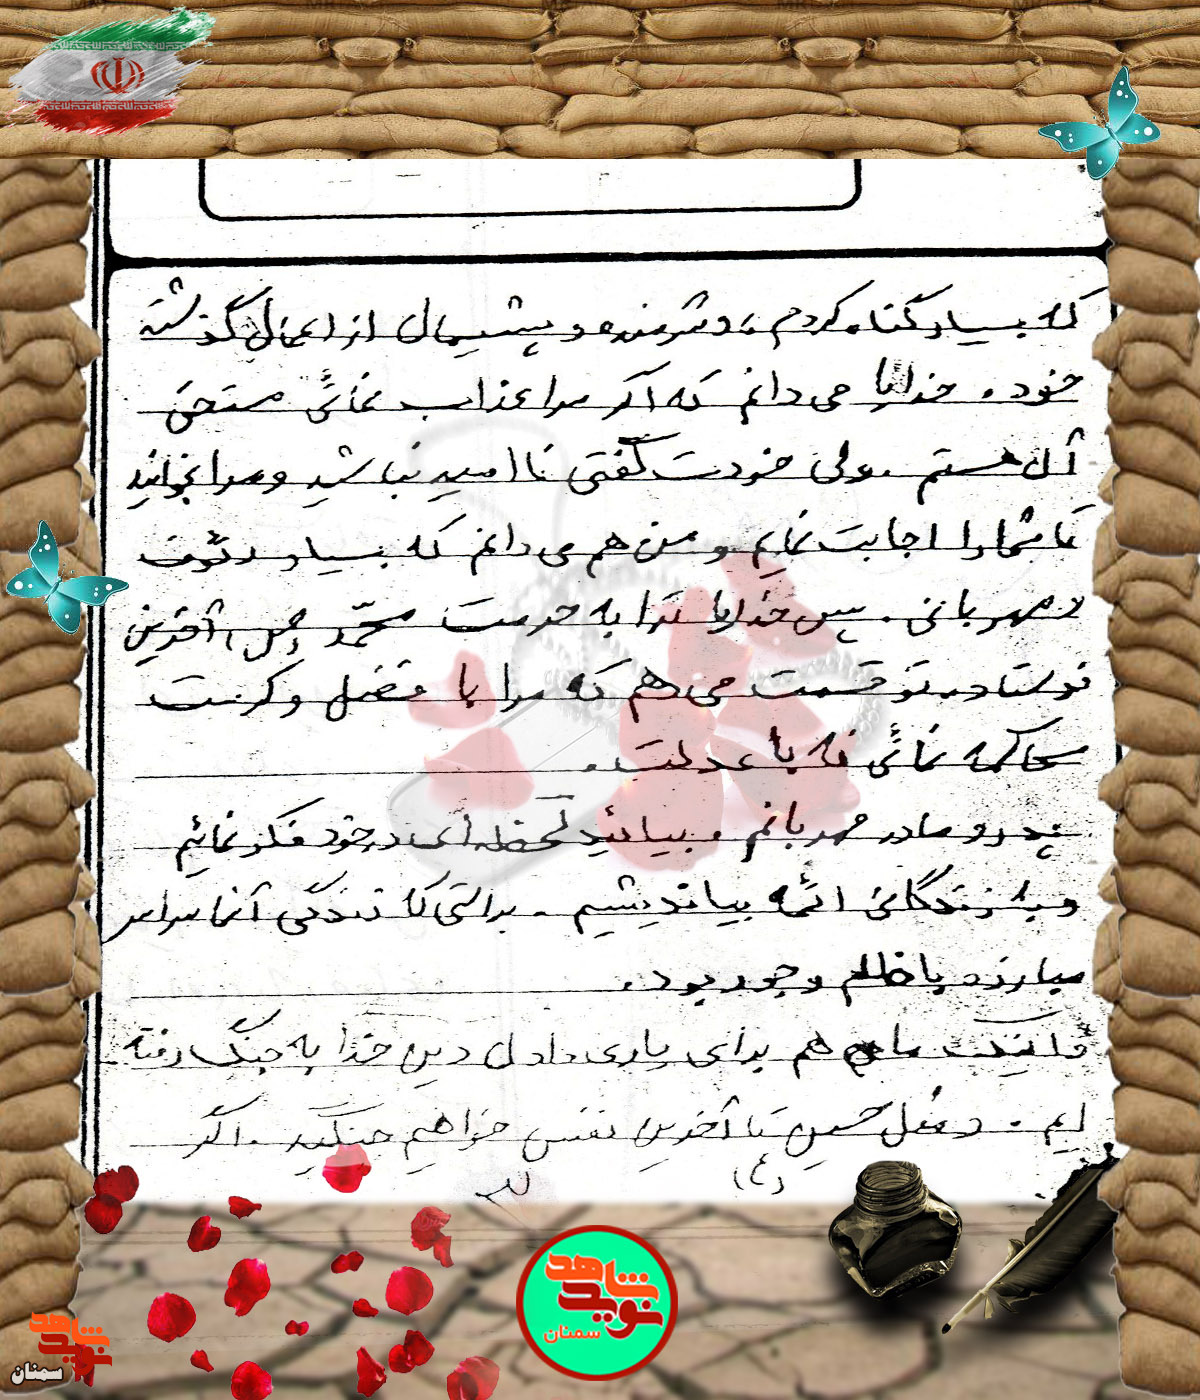 که بسیار گناه کردم و شرمنده و پشیمان از اعمال گذشته
خود. خدایا می دانم که اگر مرا عذاب نمائی مستحق
آن هستم. ولی خودت گفتی نا امید نباشید و مرا بخوانید
تا شما را اجابت نمایم و من هم می دانم که بسیار رئوف
و مهربانی. پس خدایا ترا به حرمت محمّد (ص) آخرین
فرستاده تو قسمت می دهم که مرا با فضل و کرمت
محاکمه نمائی نه با عدلت.
پدر و مادر مهربانم. بیائید لحظه ای در خود فکر نمائیم
و به زندگانی ائمه بیاندیشیم. براستی که زندگی آنها سراسر
مبارزه با ظلم و جور بود.
و اینک ما هم برای یاری دادن دین خدا به جنگ رفته
ایم. و مثل حسین تا آخرین نفس خواهیم جنگید. اگر
(۴)
شاهد
نوید
سمنان
شاهد
نوید
سمنان